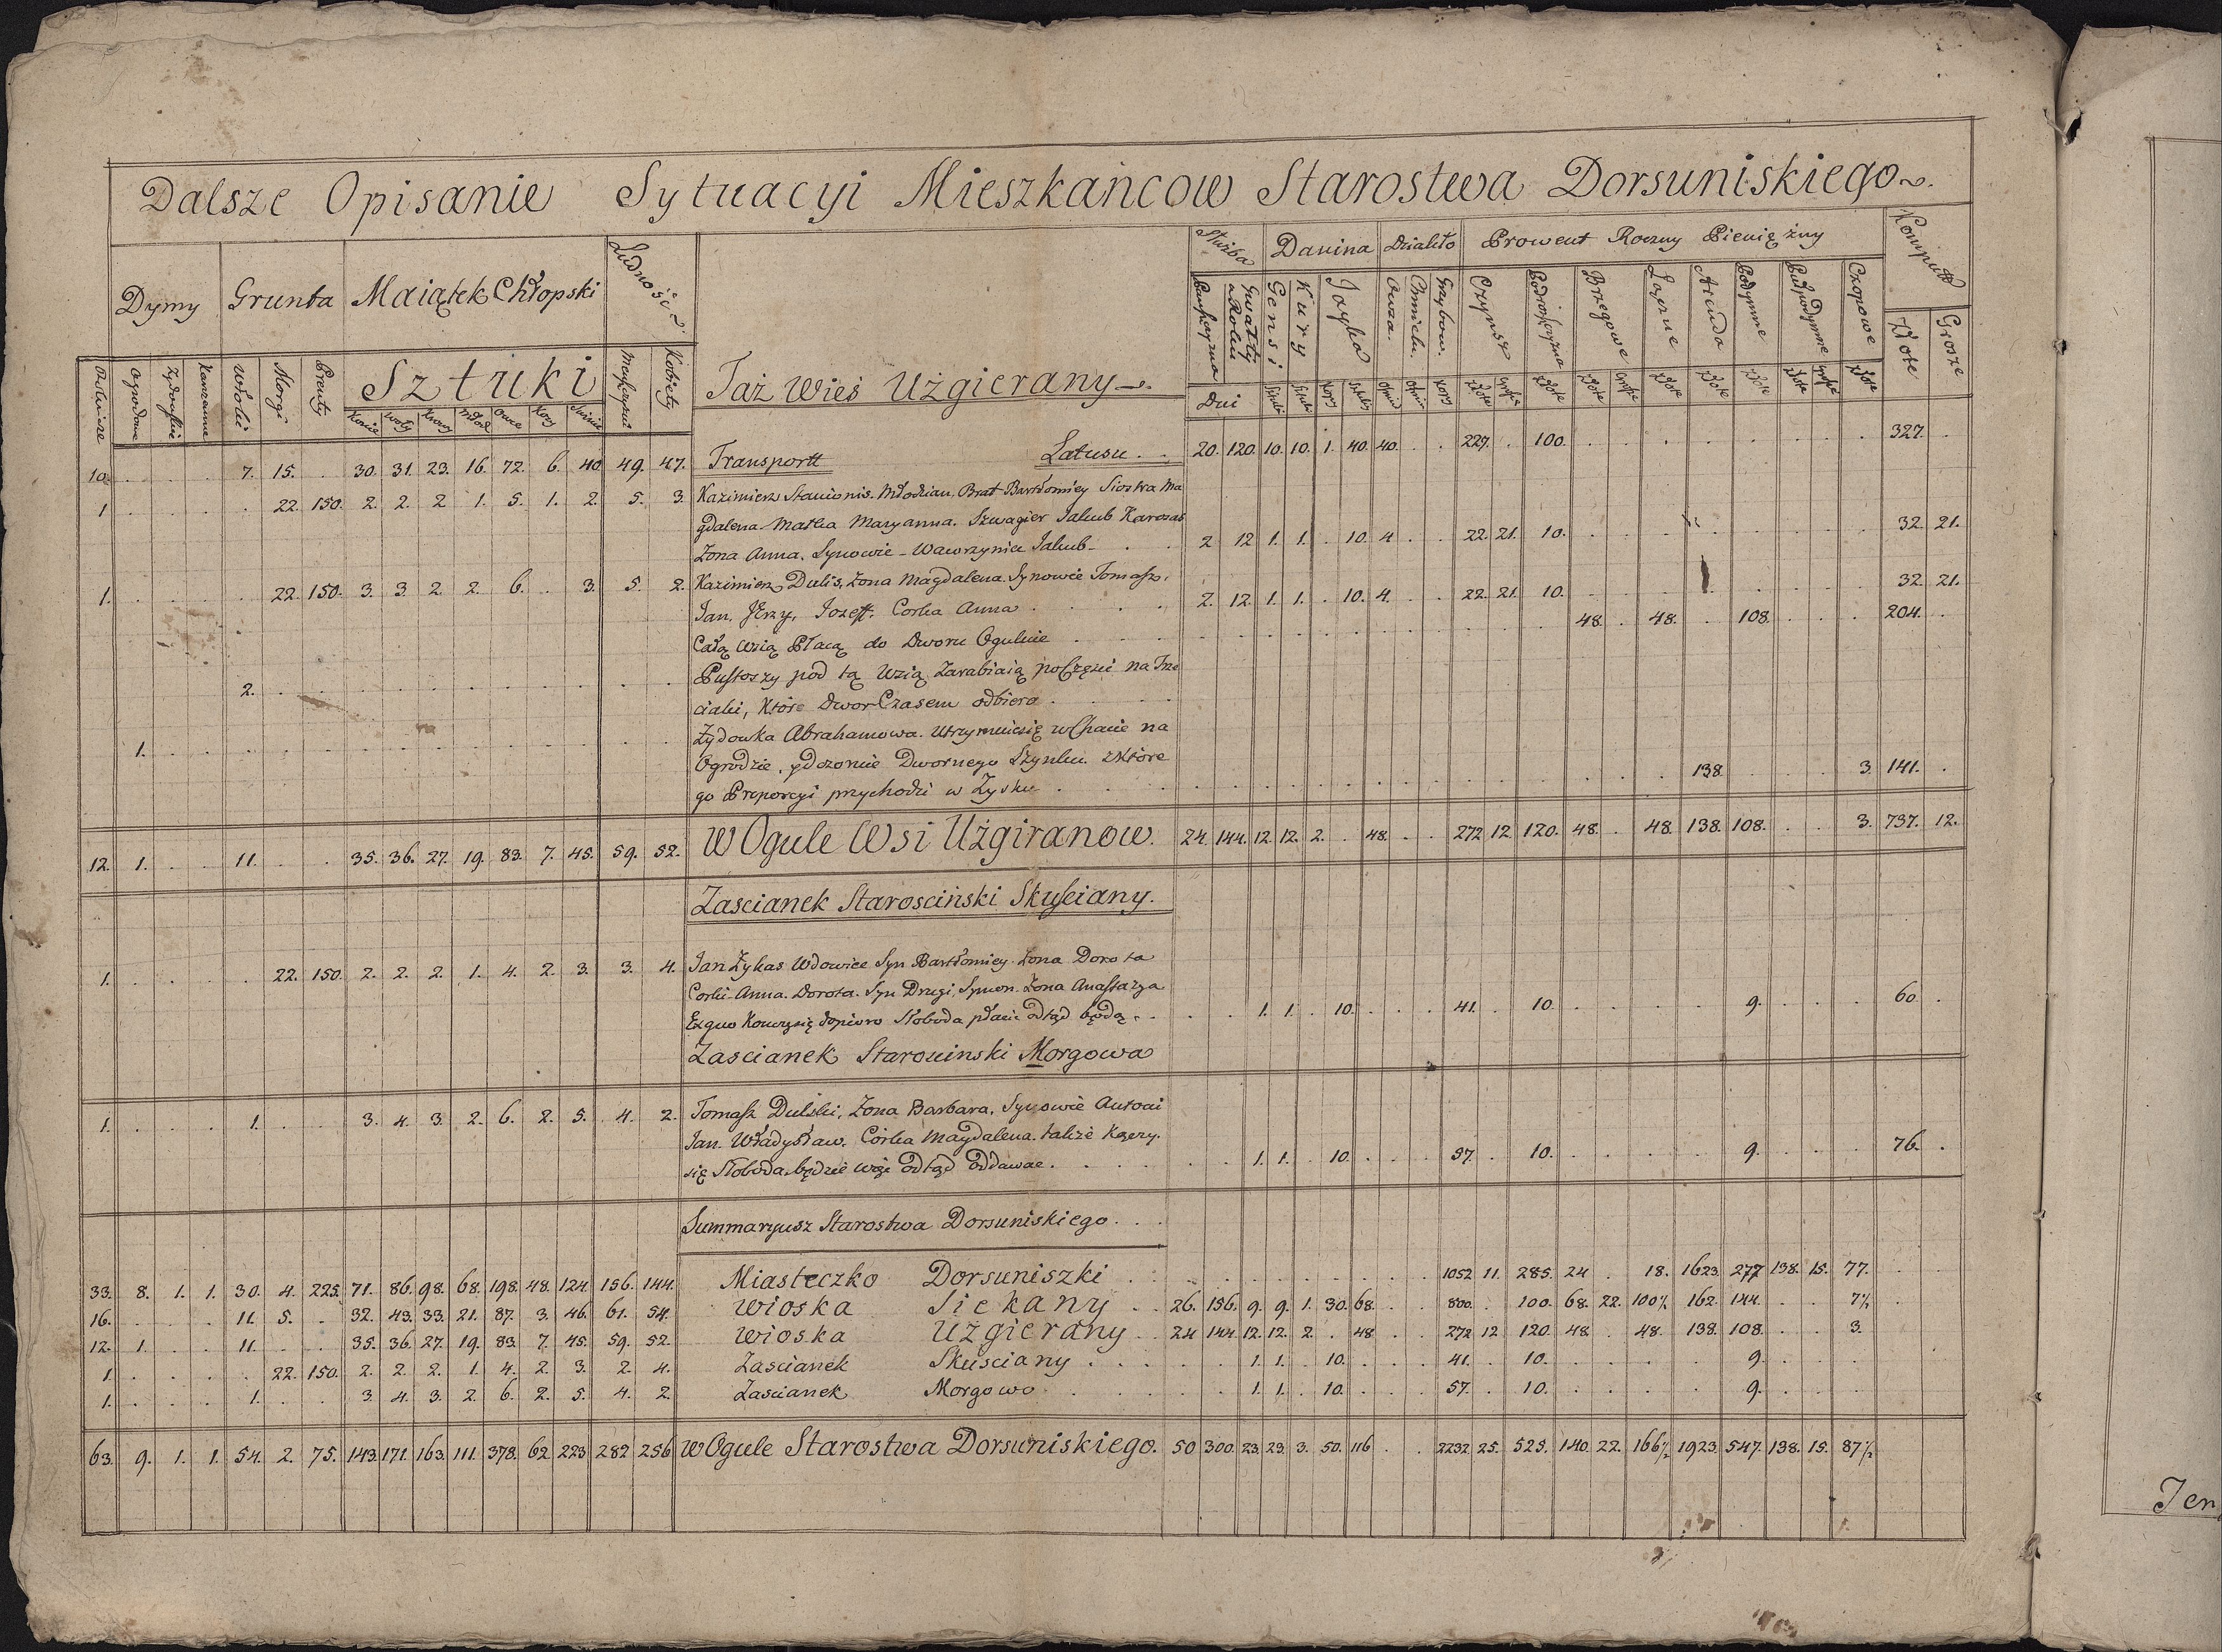 Dalsze Opisanie Sytuacyi Mieszkańcow Starostwa Dorsuniskiego
Dymy Grunta Maiątek Chłopski Ludność Służba Danina Dziakło Prowent Roczny Pieniężny Komput
Gwałty w Roku Gensi Kury Jayka Owsa Chmielu Grzybow Czynsz Brzegowe Łąźne Arenda Podymne Czopowe Złote Grosze
Ogrodowe Żydowskie Włoki Morgi Pręty Sztuki Kobiety Taż Wieś Użgierany
Konie Woły Krowy Młod Owce Kozy Świnie Dni
10. 7. 15. 30. 31. 23. 16. 72. 6. 40. 49. 47. Transportt Latusu 20. 120. 10. 10. 1. 40. 40. 227. 100. 327.
1 22. 150. 2. 2. 2 1. 5. 1. 2. 5. 3. Kazimierz Stanionis. Młodzian, Brat Bartłomiey Siostra Ma
gdalena Matka Maryanna. Szwagier Jakub Karosas
Zona Anna, Synowie Wawrzyniec Jakub 2 12 1. 1. 10. 4 22. 21. 10. 32. 21.
1. 22. 150. 3. 3. 2. 2. 6. 3. 5. 2. Kazimierz Dulis, Zona Magdalena. Synowie Tomasz,
Jan, JErzy, Jozeff. Corka Anna 2. 12. 1. 1. 10. 4. 22. 21. 10. 32. 21.
Całą Wsią Płacą do Dworu Ogulnie 48. 48. 108. 204.
2. Pustoszy pod tą Wsią Zarabiaią poCzęści na Trze
ciaki, które Dwor Czasem odbiera
1. Żydowka Abrahamowa. Utrzymuie się w Chacie na
Ogrodzie, y dozorcie Dwornego Szynku. z Które
go Proporcyi przychodzi w Zysku 138. 3 141.
12. 1. 11. 35. 36. 27. 19. 83. 7. 45. 59. 52. W Ogule Wsi Użgiranow. 24. 144. 12. 12. 2. 48. 272 12 120. 48. 48. 138. 108. 3. 737. 12.
Zascianek Starosciński Skuściany.
1. 22. 150. 2. 2. 2. 1. 4. 2. 3. 3. 4. Jan Żykas Wdowiec Syn Bartłomiey Zona Dorota
Corki Anna. Dorota. Syn Drugi, Symon. Zona Anastazya
Exquo Konczy się dopiero Słoboda płacic odtąd będą 1. 1. 10. 41. 10. 9. 60.
Zascianek Staroscinski Morgowa
1. 1. 3. 4. 3. 2. 6. 2. 5. 4. 2. Tomasz Dulski, Zona Barbara, Synowie Antoni
Jan. Władysław. Córka Magdalena. także
się Słoboda będzie więc odtąd oddawac 1. 1. 10. 57. 10. 9. 76.
Summaryusz Starostwa Dorsuniskiego
33. 8. 1. 1. 30. 4. 225. 71. 86. 98. 68. 198. 48. 124. 156. 144. Miasteczko Dorsuniszki 1052 11. 285. 24 18. 1623. 277 138. 15. 77.
16. 11. 5. 32. 43. 33. 21. 87. 3. 46. 61. 54. Wioska Siekany 26. 156. 9. 9. 1. 30. 68. 800. 100. 68. 22. 100½ 162. 144. 7½
12. 1. 11. 35. 36. 27. 19. 83. 7. 45. 59. 52. Wioska Użgierany 24 144. 12. 12. 2. 48 272 12 120. 48. 48. 138. 108. 3.
1. 22. 150. 2. 2. 2. 1. 4. 2. 3. 2. 4. Zascianek Skusciany 1. 1. 10. 41. 10. 9.
1. 1. 3. 4. 3. 2. 6. 2. 5. 4. 2. Zascianek Morgowo 1. 1. 10. 57. 10. 9.
63. 9. 1. 1. 54. 2. 75. 143. 171. 163. 111. 378. 62. 223 282 256 w Ogule Starostwa Dorsuniskiego. 50 300. 23. 23. 3. 50. 116 2232 25. 525. 140. 22. 166½ 1923. 547. 138. 15. 87½